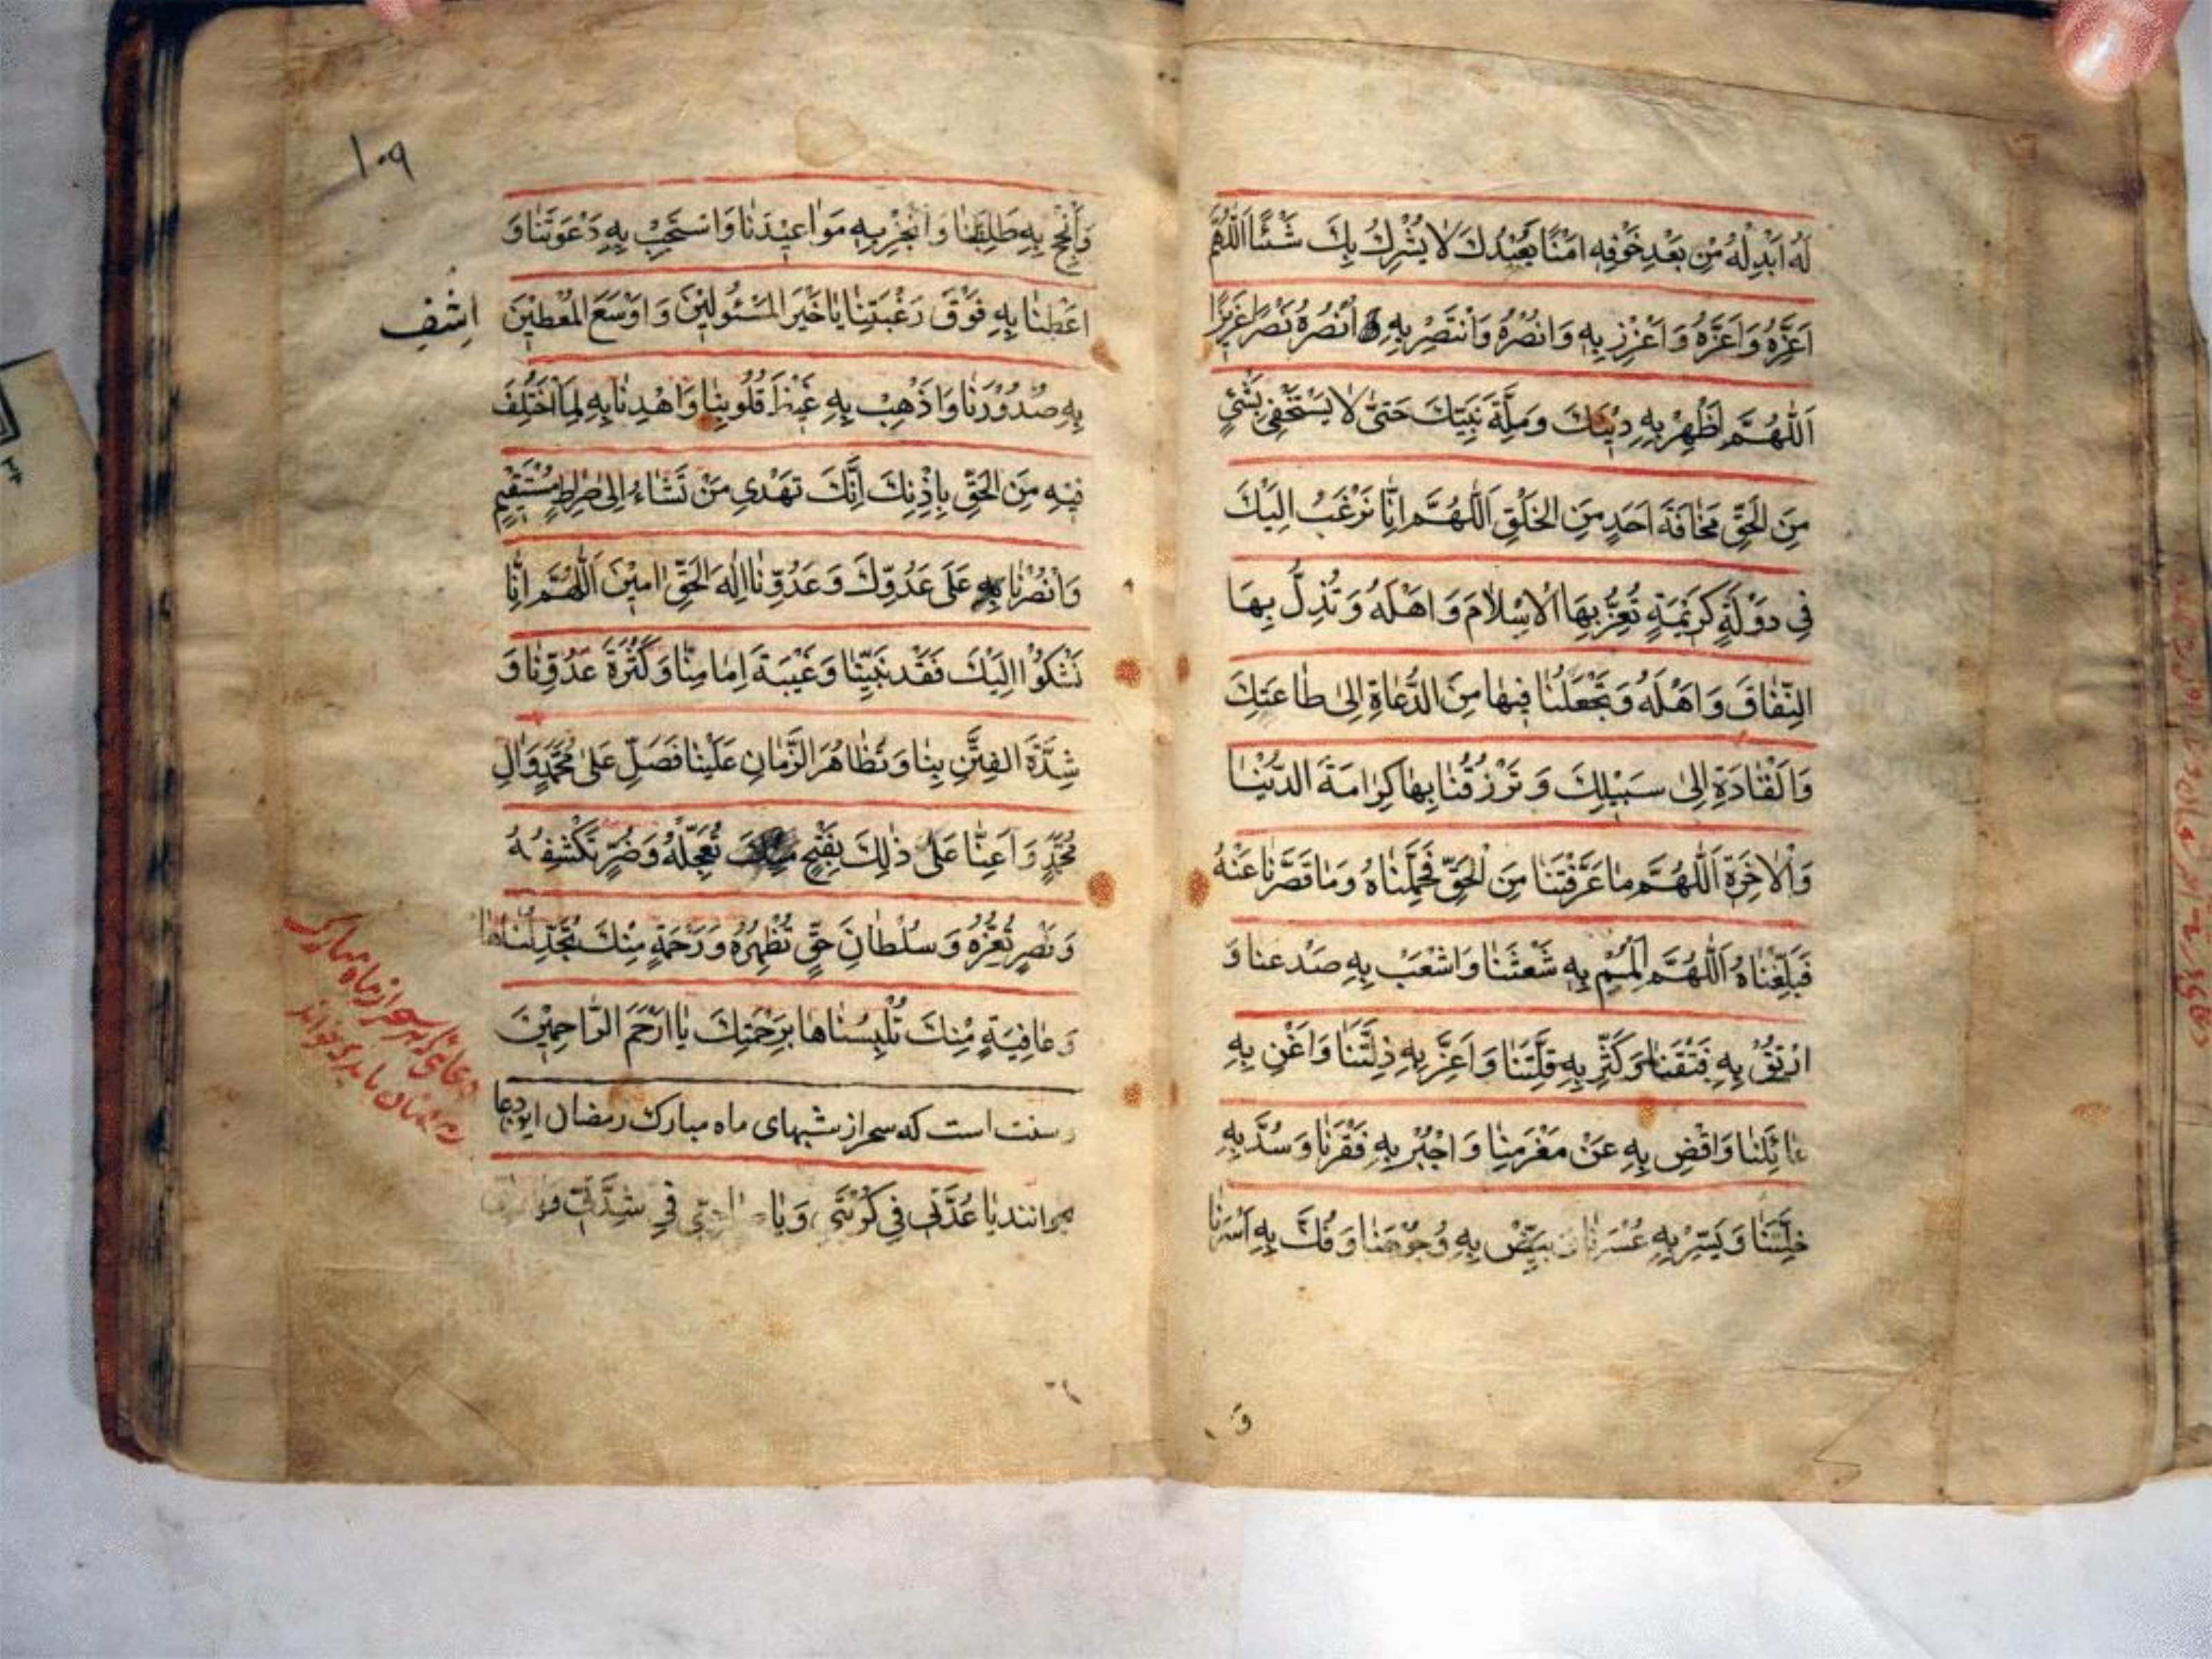 لَهُ اَبْدِلْهُ مِنْ بَعْدِ خَوْفِهِ اَمْنًا يَعْبُدُكَ لا يُشْرِكُ بِكَ شَيْئًا اَللّٰهُمَّ
اَعِزَّهُ وَاَعِزَّهُ وَاَعْزِزْ بِهِ وَانْصُرْهُ وَانْتَصِرْ بِهِ اُنْصُرْهُ نَصْرًا عَزِيزًا
اَللّٰهُمَّ اَظْهِرْ بِهِ دِيْنَكَ وَمِلَّةَ نَبِيِّكَ حَتّىٰ لا يَسْتَخْفِىَ بِشَئٍ
مِنَ الْحَقِّ مَخافَةَ اَحَدٍ مِنَ الْخَلْقِ اَللّٰهُمَّ اِنّا نَرْغَبُ اِلَيْكَ
فِى دَوْلَةٍ كَرِيْمَةٍ تُعِزُّ بِهَا الْاِسْلامَ وَاَهْلَهُ وَتُذِلُّ بِهَا
النِّفاقَ وَاَهْلَهُ وَتَجْعَلُنا فِيْها مِنَ الدُّعاةِ اِلىٰ طاعَتِكَ
وَالْقادَةِ اِلىٰ سَبِيْلِكَ وَتَرْزُقُنا بِها كَرامَةَ الدُّنْيا
وَالْاخِرَةِ اَللّٰهُمَّ ما عَرَّفْتَنا مِنَ الْحَقِّ فَحَمِّلْناهُ وَما قَصَّرْنا عَنْهُ
فَبَلِّغْناهُ اَللّٰهُمَّ الْمُمْ بِهِ شَعْثَنا وَاشْعَبْ بِهِ صَدْعَنا وَ
ارْتُقْ بِهِ فَتْقَنا وَكَثِّرْ بِهِ قِلَّتَنا وَاَعِزَّ بِهِ ذِلَّتَنا وَاَغْنِ بِهِ
عائِلَنا وَاقْضِ بِهِ عَنْ مَغْرَمِنا وَاجْبُرْ بِهِ فَقْرَنا وَسُدَّ بِهِ
خَلَّتَنا وَيَسِّرْ بِهِ عُسْرَنا وَ بَيِّضْ بِهِ وُجُوْهَنا وَفُكَّ بِهِ اَسْرَنا
وَ
١٠٩
وَاَنْجِحْ بِهِ طَلِبَتَنا وَاَنْجِزْ بِهِ مَواعِيْدَنا وَاسْتَجِبْ بِهِ دَعْوَتَنا وَ
اَعْطِنا بِهِ فَوْقَ رَغْبَتِنا يا خَيْرَ الْمَسْئُولِيْنَ وَاَوْسَعَ الْمُعْطِيْنَ
اِشْفِ
بِهِ صُدُوْرَنا وَاَذْهِبْ بِهِ غَيْظَ قُلُوبِنا وَاهْدِنا بِهِ لِمَا اخْتُلِفَ
فِيْهِ مِنَ الْحَقِّ بِاِذْنِكَ اِنَّكَ تَهْدِى مَنْ تَشاءُ اِلىٰ صِراطٍ مُسْتَقِيْمٍ
وَانْصُرْنا بِهِ عَلىٰ عَدُوِّكَ وَعَدُوِّنا اِلٰهَ الْحَقِّ امِيْنَ اَللّٰهُمَّ اِنّا
نَشْكُوْا اِلَيْكَ فَقْدَ نَبِيِّنا وَغَيْبَةَ اِمامِنا وَكَثْرَةَ عَدُوِّنا وَ
شِدَّةَ الْفِتَنِ بِنا وَتَظاهُرَ الزَّمانِ عَلَيْنا فَصَلِّ عَلىٰ مُحَمَّدٍ وَالِ
مُحَمَّدٍ وَاَعِنّا عَلىٰ ذٰلِكَ بِفَتْحٍ تُعَجِّلُهُ وَضُرٍّ تَكْشِفُهُ
وَنَصْرٍ تُعِزُّهُ وَسُلْطانِ حَقٍّ تُظْهِرُهُ وَرَحْمَةٍ مِنْكَ تُجَلِّلُناها
وَعافِيَةٍ مِنْكَ تُلْبِسُناها بِرَحْمَتِكَ يا اَرْحَمَ الرّاحِمِيْنَ
دعائى كه سحر از ماه مبارك
رمضان بايد خواند
و سنت است كه سحر از شبهاى ماه مبارك رمضان اين دعا
بخوانند يا عُدَّتِى فِى كُرْبَتِى وَيا صاحِبِى فِى شِدَّتِى